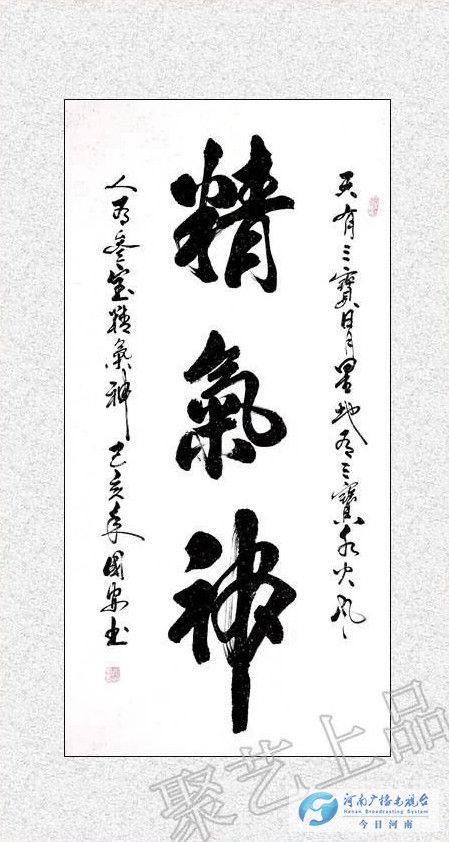 天有三寳日月星地有三寳水火风
精氣神
人有叁宝精氣神 己亥年國安书
聚艺上品
河南广播电视台
Henan Broadcasting System
今日河南